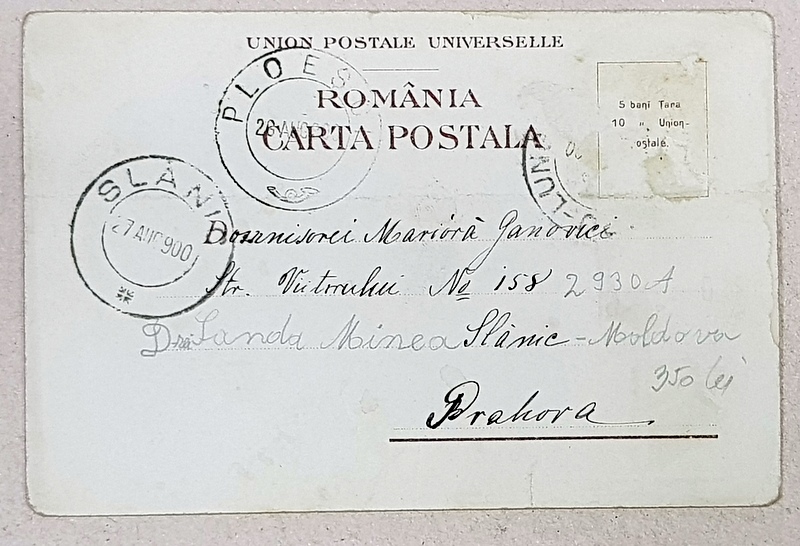 UNION POSTALE UNIVERSELLE
ROMÂNIA
CARTA POSTALA
5 bani Tara
10 " Union-
ostale.
PLOES
26 AUG
SLANI
27 AUG 900
-LUN
Domnisorei Mariora Janovici
Str. Viitorului No 158 2930A
D-rei Sanda Minea Slănic-Moldova
350 lei
Prahova